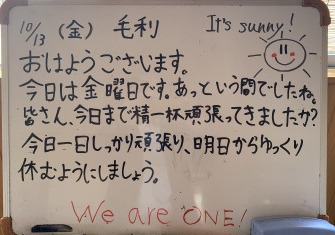 10/13 (金) 毛利 It's sunny!
おはようございます。
今日は金曜日です。あっという間でしたね。
皆さん、今日まで精一杯頑張ってきましたか?
今日一日しっかり頑張り、明日からゆっくり
休むようにしましょう。
We are ONE!